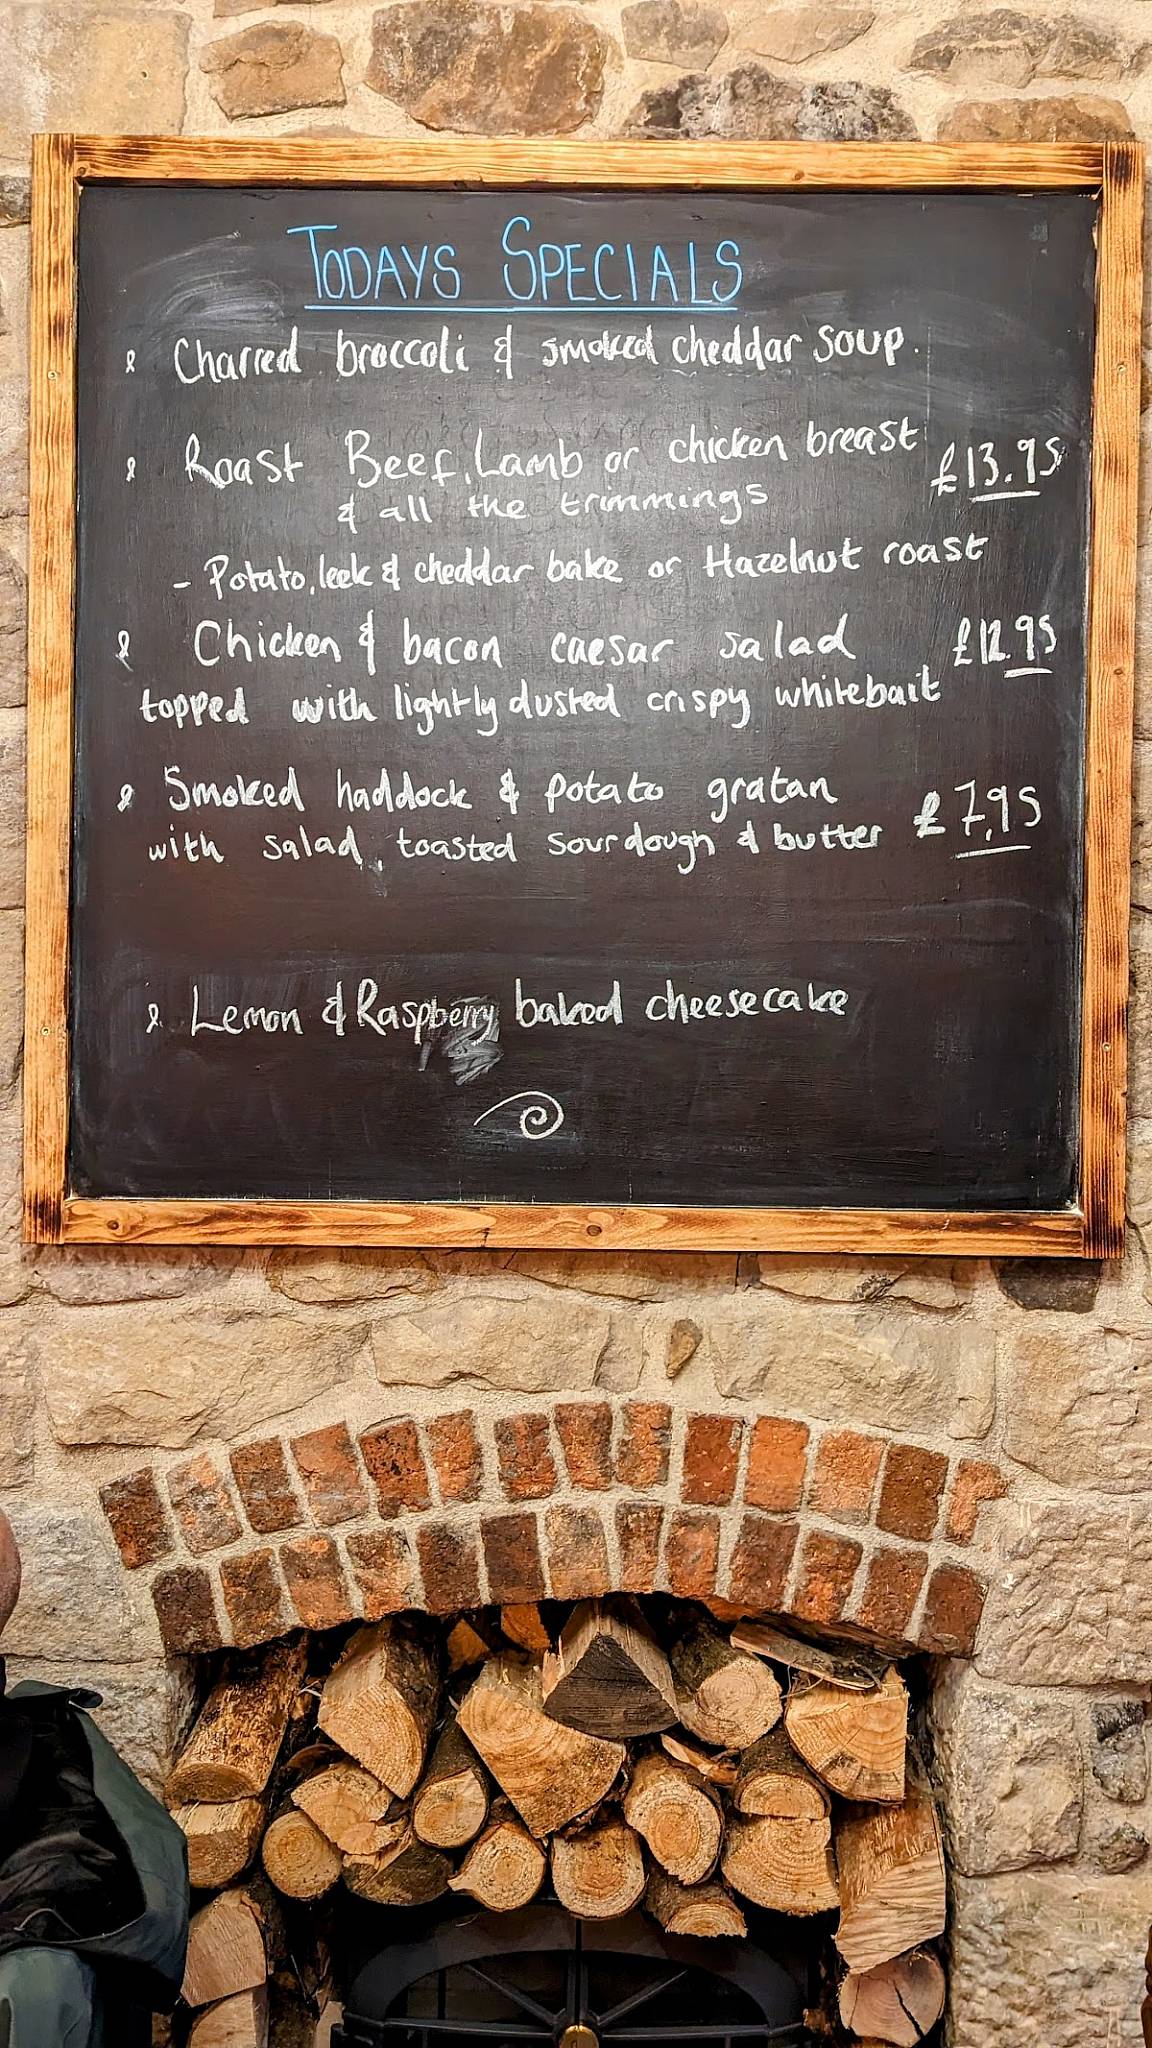 TODAYS SPECIALS
Charred broccoli & smoked cheddar soup.
Roast Beef, Lamb or chicken breast £13.95
& all the trimmings
- Potato, leek & cheddar bake or Hazelnut roast
Chicken & bacon caesar salad £12.95
topped with lightly dusted crispy whitebait
Smoked haddock & potato gratan £7.95
with salad, toasted sourdough & butter
Lemon & Raspberry baked cheesecake